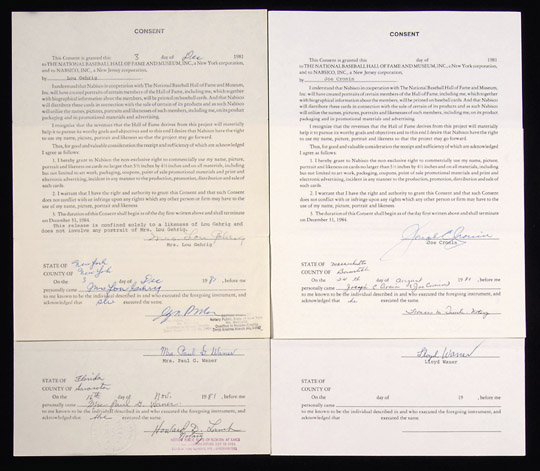 CONSENT
This Consent is granted this 3 day of Dec 1981
to THE NATIONAL BASEBALL HALL OF FAME AND MUSEUM, INC., a New York corporation,
and to NABISCO, INC., a New Jersey corporation,
by Lou Gehrig
I understand that Nabisco in cooperation with The National Baseball Hall of Fame and Museum,
Inc. will have created portraits of certain members of the Hall of Fame, including me, which together
with biographical information about the members, will be printed on baseball cards. And that Nabisco
will distribute these cards in connection with the sale of certain of its products and as such Nabisco
will utilize the names, pictures, portraits and likenesses of such members, including me, on its product
packaging and in promotional materials and advertising.
I recognize that the revenue that the Hall of Fame derives from this project will materially
help it to pursue its worthy goals and objectives and to this end I desire that Nabisco have the right
to use my name, picture, portrait and likeness so that the project may go forward.
Thus, for good and valuable consideration the receipt and sufficiency of which are acknowledged
I agree as follows:
1. I hereby grant to Nabisco the non exclusive right to commercially use my name, picture,
portrait and likeness on cards no larger than 3½ inches by 4½ inches and on all materials, including
but not limited to art work, packaging, coupons, point of sale promotional materials and print and
electronic advertising, incident in any manner to the production, promotion, distribution and sale of
such cards.
2. I warrant that I have the right and authority to grant this Consent and that such Consent
does not conflict with or infringe upon any rights which any other person or firm may have to
the use of my name, picture, portrait and likeness.
3. The duration of this Consent shall begin as of the day first written above and shall terminate
on December 31, 1984.
This release is confined solely to a likeness of Lou Gehrig and
does not involve any portrait of Mrs. Lou Gehrig.
Mrs. Lou Gehrig
STATE OF New York
COUNTY OF New York
On the 3 day of Dec 1981 before me
personally came Mrs Lou Gehrig
to me known to be the individual described in and who executed the foregoing instrument, and
acknowledged that she executed the same.
CONSENT
This Consent is granted this day of 1981
to THE NATIONAL BASEBALL HALL OF FAME AND MUSEUM, INC., a New York corporation,
and to NABISCO, INC., a New Jersey corporation,
by Joe Cronin
I understand that Nabisco in cooperation with The National Baseball Hall of Fame and Museum,
Inc. will have created portraits of certain members of the Hall of Fame, including me, which together
with biographical information about the members, will be printed on baseball cards. And that Nabisco
will distribute these cards in connection with the sale of certain of its products and as such Nabisco
will utilize the names, pictures, portraits and likenesses of such members, including me, on its product
packaging and in promotional materials and advertising.
I recognize that the revenue that the Hall of Fame derives from this project will materially
help it to pursue its worthy goals and objectives and to this end I desire that Nabisco have the right
to use my name, picture, portrait and likeness so that the project may go forward.
Thus, for good and valuable consideration the receipt and sufficiency of which are acknowledged
I agree as follows:
1. I hereby grant to Nabisco the non exclusive right to commercially use my name, picture,
portrait and likeness on cards no larger than 3½ inches by 4½ inches and on all materials, including
but not limited to art work, packaging, coupons, point of sale promotional materials and print and
electronic advertising, incident in any manner to the production, promotion, distribution and sale of
such cards.
2. I warrant that I have the right and authority to grant this Consent and that such Consent
does not conflict with or infringe upon any rights which any other person or firm may have to the
use of my name, picture, portrait and likeness.
3. The duration of this Consent shall begin as of the day first written above and shall terminate
on December 31, 1984.
Joseph E. Cronin
Joe Cronin
STATE OF Massachusetts
COUNTY OF Barnstable
On the 24th day of August 1981 before me
personally came Joseph E Cronin
to me known to be the individual described in and who executed the foregoing instrument, and
acknowledged that he executed the same.
Mrs. Paul G Waner
Mrs. Paul G. Waner
STATE OF Florida
COUNTY OF Sarasota
On the 16th day of Nov. 1981 before me
personally came Mrs Paul G. Waner
to me known to be the individual described in and who executed the foregoing instrument, and
acknowledged that she executed the same.
Notary
Lloyd Waner
Lloyd Waner
STATE OF
COUNTY OF
On the day of 19 before me
personally came
to me known to be the individual described in and who executed the foregoing instrument, and
acknowledged that executed the same.